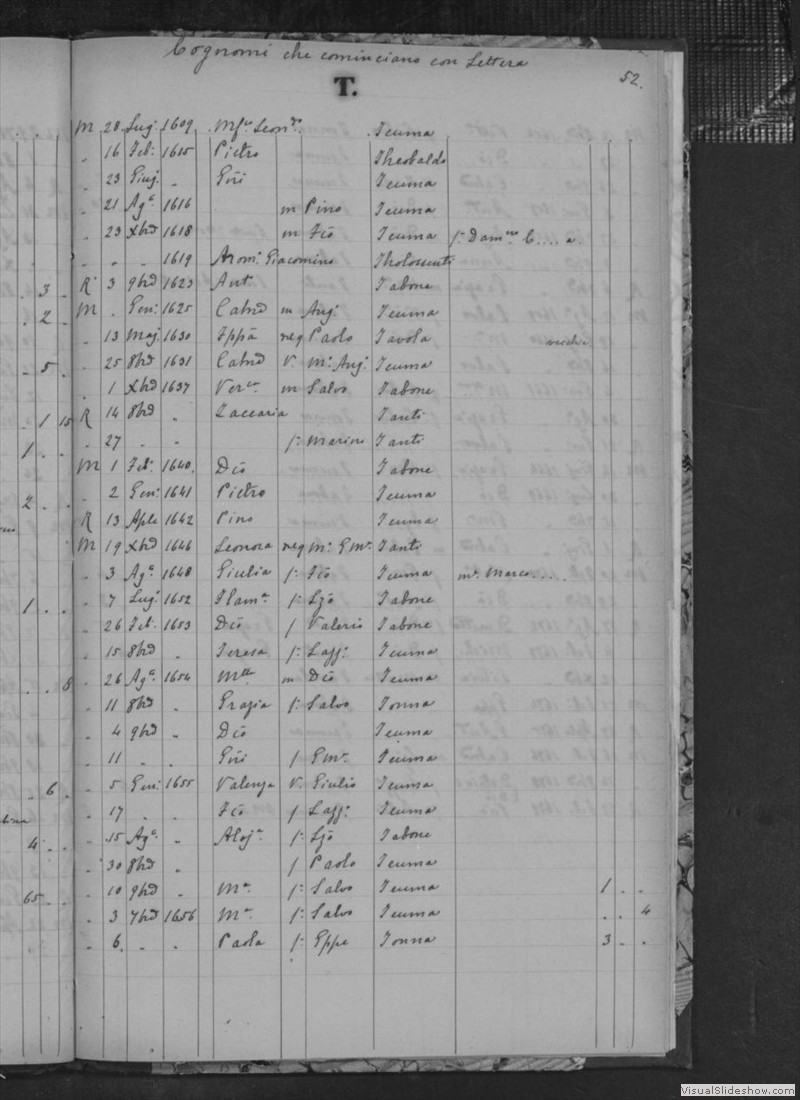 Cognomi che cominciano con Lettera
T.
52.
M 28 Lug. 1609 Mfu Leon Teuma
" 16 Feb. 1615 Pietro Theobaldo
" 23 Giug. " Gñi Teuma
" 21 Ago. 1616 m Pino Teuma
" 23 Xbd 1618 m Fco Teuma
" " " 1619 Arom. Giacomino
3 R 3 9bd 1623 Ant. Tabone
2 M " Gen. 1625 Catnd m Ang. Teuma
" 13 Mag. 1630 neg Paolo Tavola
5 " 25 8bd 1631 Catnd V. Mo Ang. Teuma
" 1 Xbd 1637 Verca m Salvo Tabone
1 15 R 14 8bd " Zaccaria Tanti
1 " 27 " " f. Marino Tanti
M 1 Feb. 1640 Dco Tabone
2 " 2 Gen. 1641 Pietro Teuma
R 13 Aple 1642 Pino Teuma
M 19 Xbd 1646 Leonora neg Mo Gme Tanti
" 3 Ago. 1648 Giulia f. Fco Teuma mo Marco....
1 " 7 Lug. 1652 Flama f. Lzo Tabone
" 26 Feb. 1653 Dco f Valerio Tabone
" 15 8bd Teresa f. Teuma
8 " 26 Ago. 1654 m Dco Teuma
" 11 8bd Grazia f. Salvo Tonna
" 4 9bd " Dco Teuma
" 11 " Gñi f Gme Teuma
6 " 5 Gen. 1655 Valenza V. Giulio Teuma
" 17 " " Fco f Teuma
4 " 15 Ago. " Aloja f. Lzo Tabone
" 30 8bd " f Paolo Teuma
65 " 10 9bd " Ma f. Salvo Teuma 1
" 3 7bd 1656 Ma f. Salvo Teuma 4
" 6 " " Paola f. Gppe Tonna 3
VisualSlideshow.com